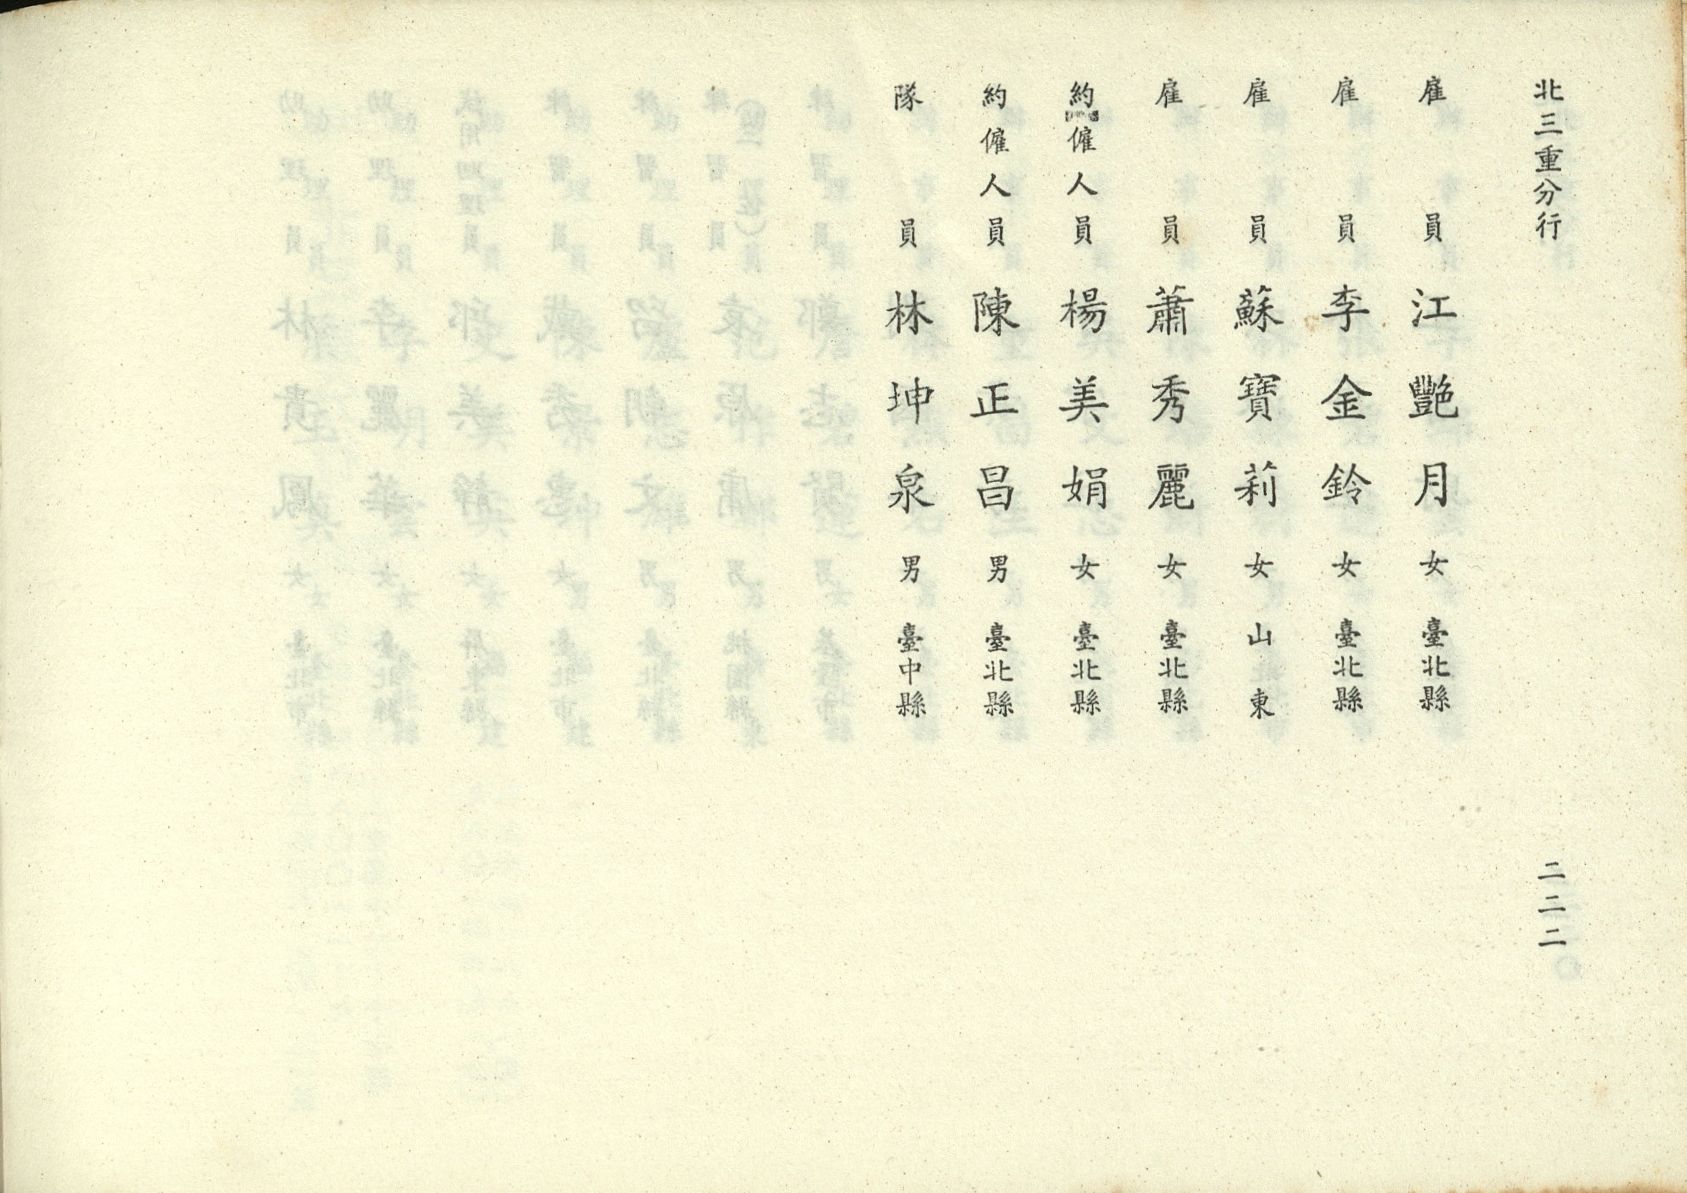 北三重分行 二二二
雇員 江艷月 女 臺北縣
雇員 李金鈴 女 臺北縣
雇員 蘇寶莉 女 山東
雇員 蕭秀麗 女 臺北縣
約僱人員 楊美娟 女 臺北縣
約僱人員 陳正昌 男 臺北縣
隊員 林坤泉 男 臺中縣